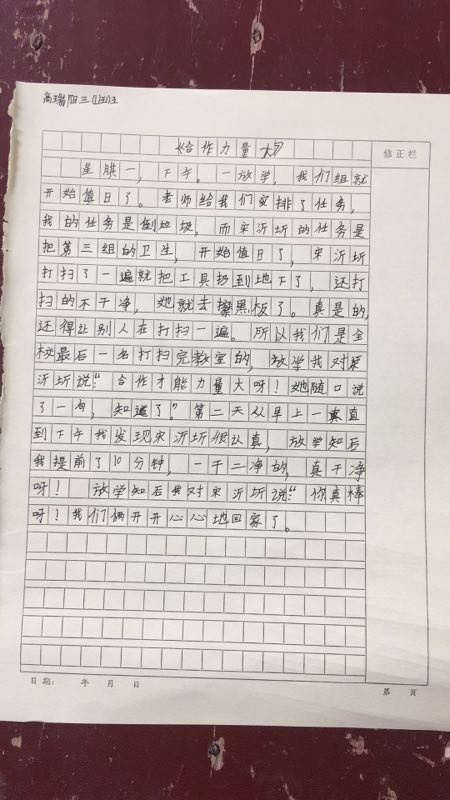 高瑞阳三(1)王
《合作力量大》
修正栏
星期一,下午。一放学,我们组就
开始值日了。老师给我们安排了任务,
我的任务是倒垃圾,而宋沂圻的任务是
把第三组的卫生,开始值日了,宋沂圻
打扫了一遍就把工具扔到地下了,还打
扫的不干净,她就去擦黑板了。真是的,
还得让别人在打扫一遍。所以我们是全
校最后一名打扫完教室的,放学我对宋
沂圻说:“合作才能力量大呀!她随口说
了一句,知道了”。第二天从早上一直
到下午我发现宋沂圻很认真,放学知后
我提前了10分钟,一干二净的,真干净
呀!放学知后我对宋沂圻说:“你真棒
呀!我们俩开开心心地回家了。
日期: 年 月 日
第 页